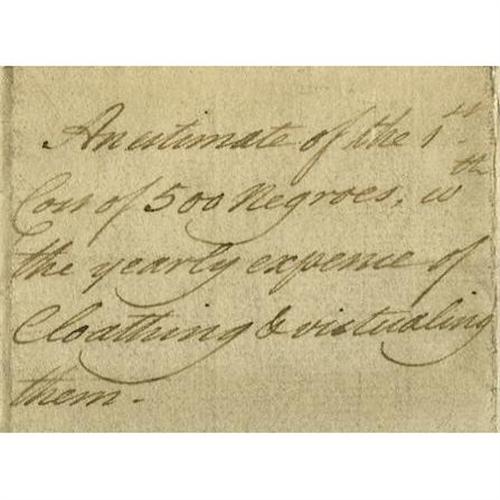 An estimate of the 1st
Cost of 500 Negroes, wth
the yearly expence of
Cloathing & victualing
them.